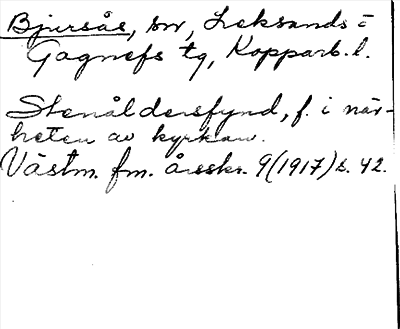 Bjursås, sn, Leksands =
Gagnefs tg, Kopparb. l.
Stenåldersfynd, f. i när-
heten av kyrkan.
Västm. fm. årsskr. 9(1917) s. 42.